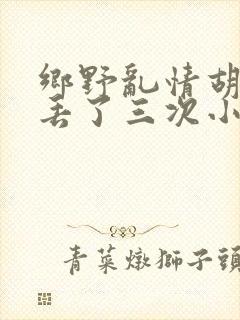 鄉野亂情胡
丟了三次小
青菜燉獅子頭